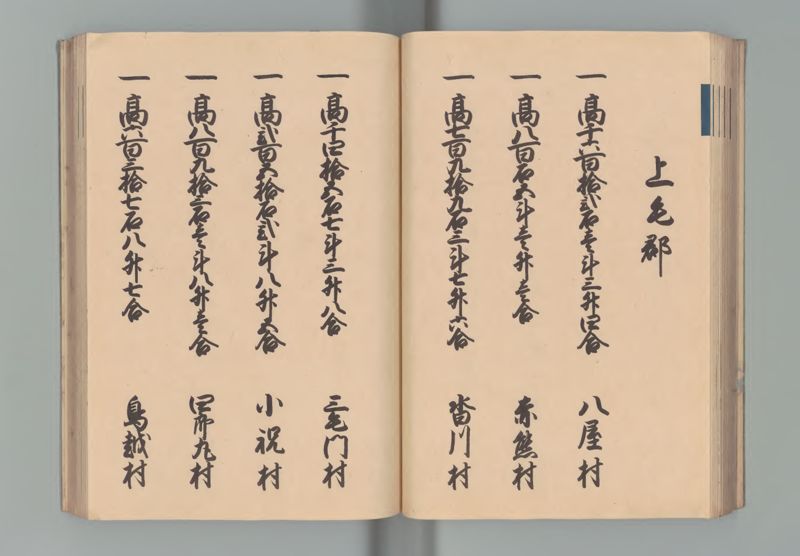 上毛郡
一高千六百拾弐石壱斗三升四合 八屋村
一高八百石五斗壱升壱合 赤熊村
一高七百九拾九石三斗七升六合 沓川村
一高千四拾五石七斗三升八合 三毛門村
一高弐百五拾石弐斗八升五合 小祝村
一高八百九拾三石壱斗八升壱合 四郎丸村
一高六百三拾七石八升七合 鳥越村